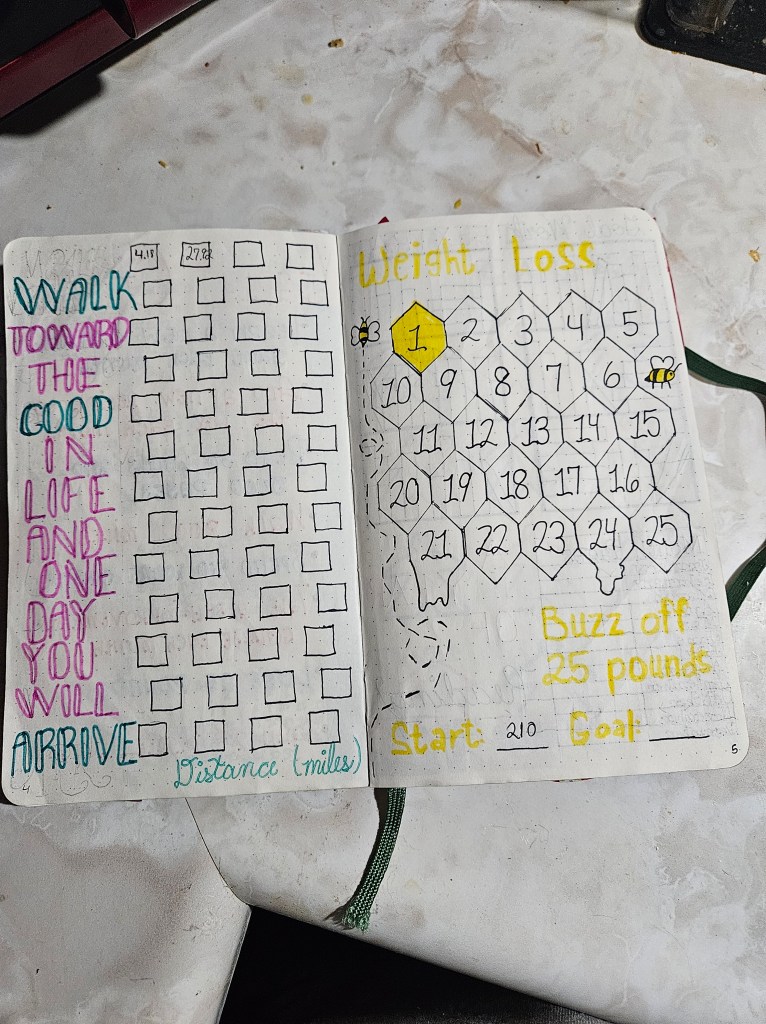 4.18 27.92
WALK
TOWARD
THE
GOOD
IN
LIFE
AND
ONE
DAY
YOU
WILL
ARRIVE
Distance (miles)
4
Weight Loss
1 2 3 4 5
10 9 8 7 6
11 12 13 14 15
20 19 18 17 16
21 22 23 24 25
Buzz off
25 pounds
Start: 210 Goal:
5